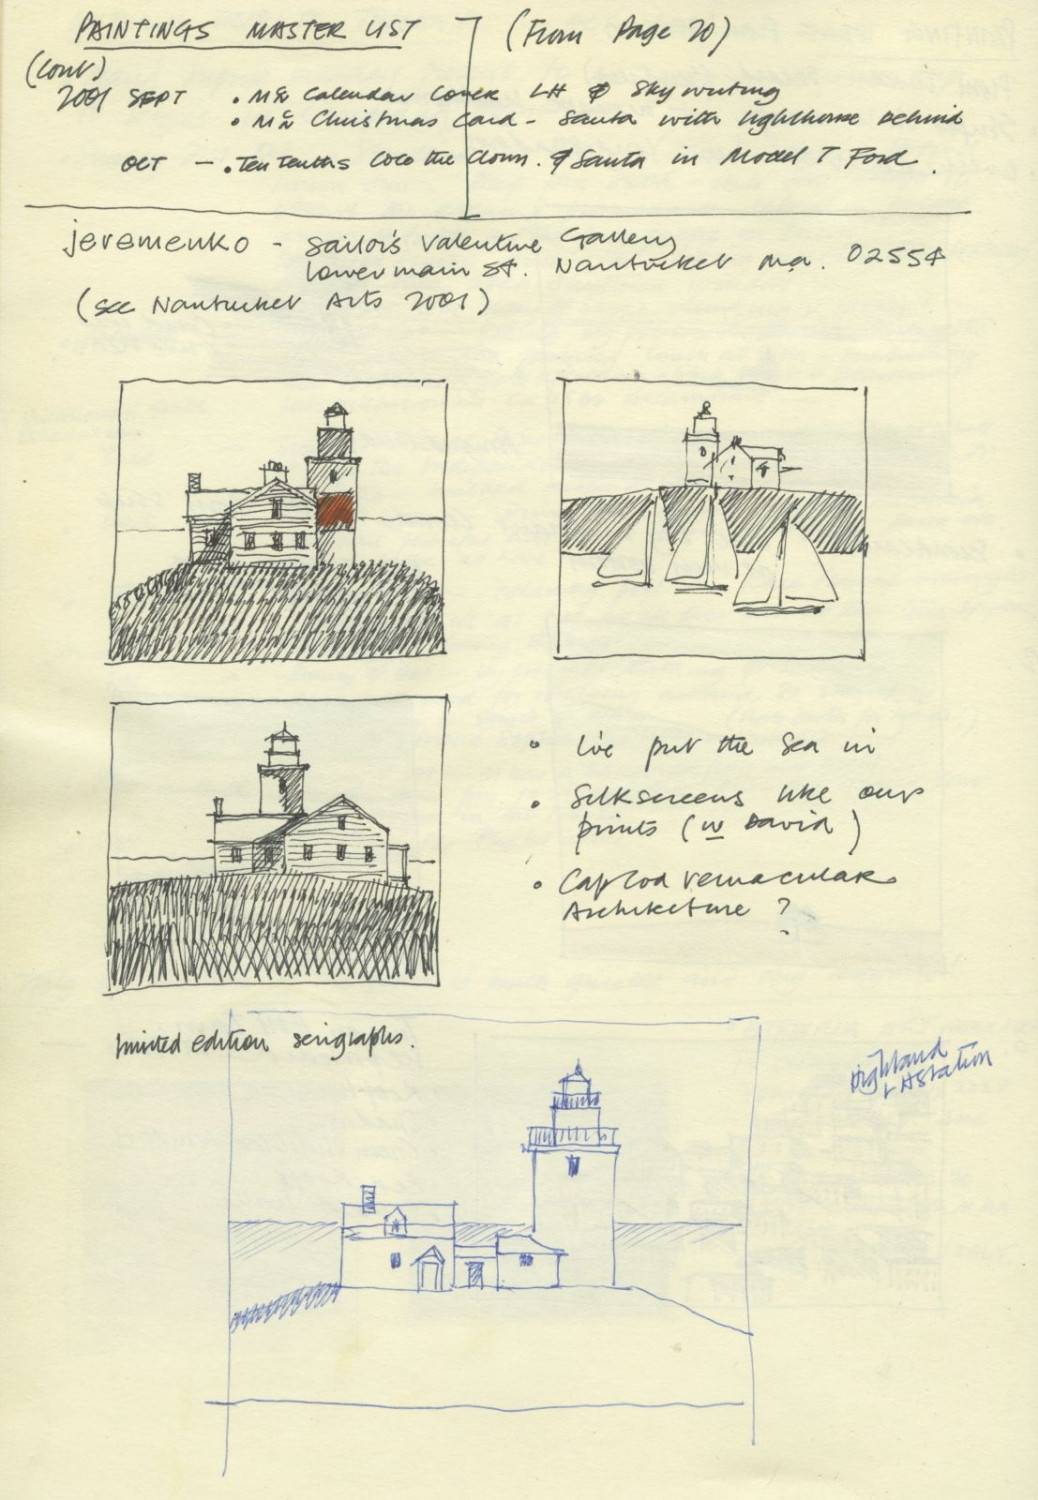 PAINTINGS MASTER LIST (From Page 20)
(Cont)
2001 SEPT • Calendar Cover LH & Sky writing
• Christmas Card - Santa with lighthouse behind
OCT - • Ten Tenths Coco the Clown. & Santa in Model T Ford.
jeremenko - Sailor's Valentine Gallery
lower main St. Nantucket Ma. 02554
(see Nantucket Arts 2001)
• I've put the Sea in
• Silkscreens like our
prints (w David)
• Cape Cod vernacular
Architecture ?
limited edition serigraphs.
Highland
LHstation